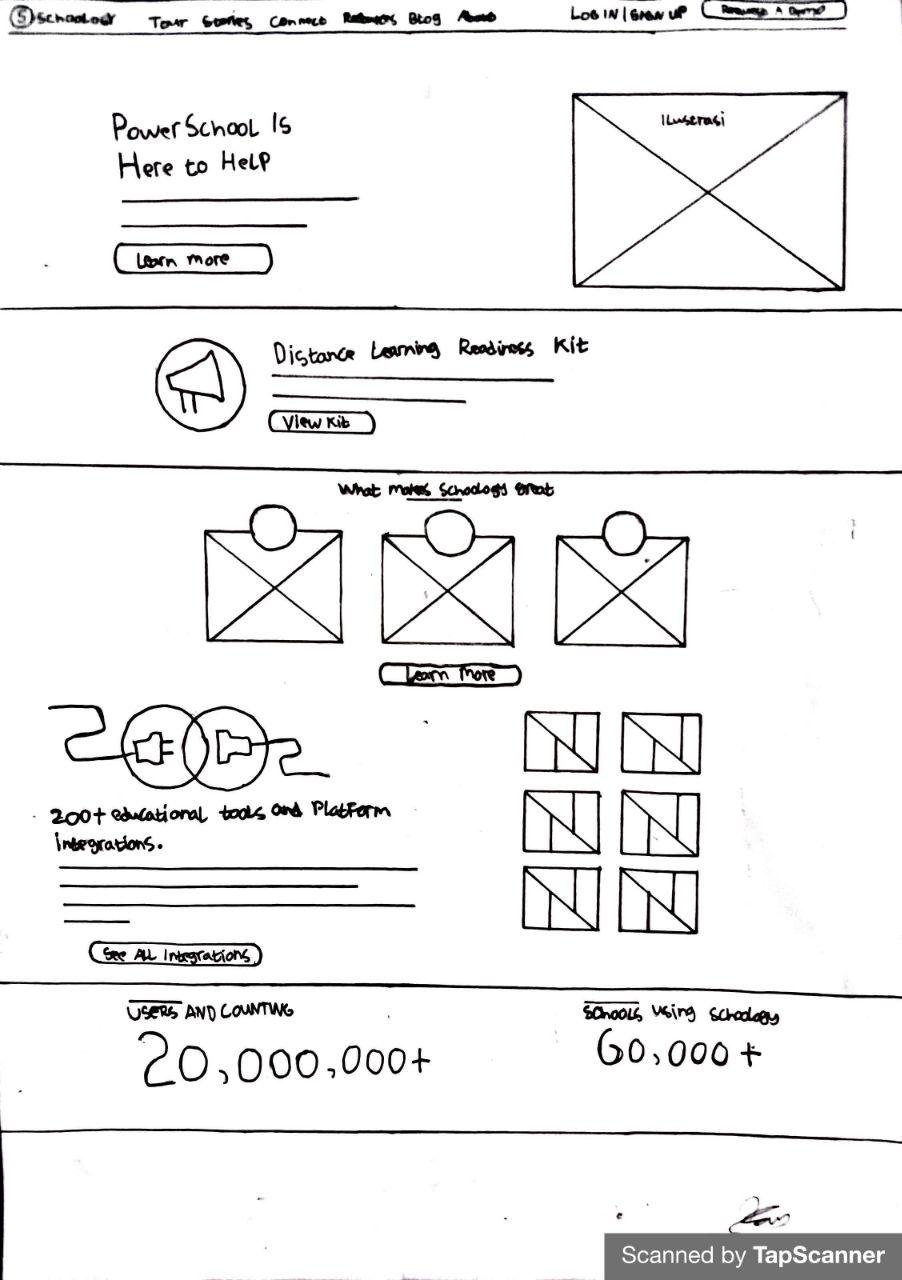 S Schoology Tour Stories Connect Resources Blog About LOG IN | SIGN UP REQUEST A DEMO
PowerSchool Is
Here to Help
Learn more
Iluserasi
Distance Learning Readiness Kit
View Kit
What makes Schoology Great
Learn More
200+ educational tools and Platform
integrations.
See ALL Integrations
USERS AND COUNTING
20,000,000+
SCHOOLS using schoology
60,000+
Scanned by TapScanner